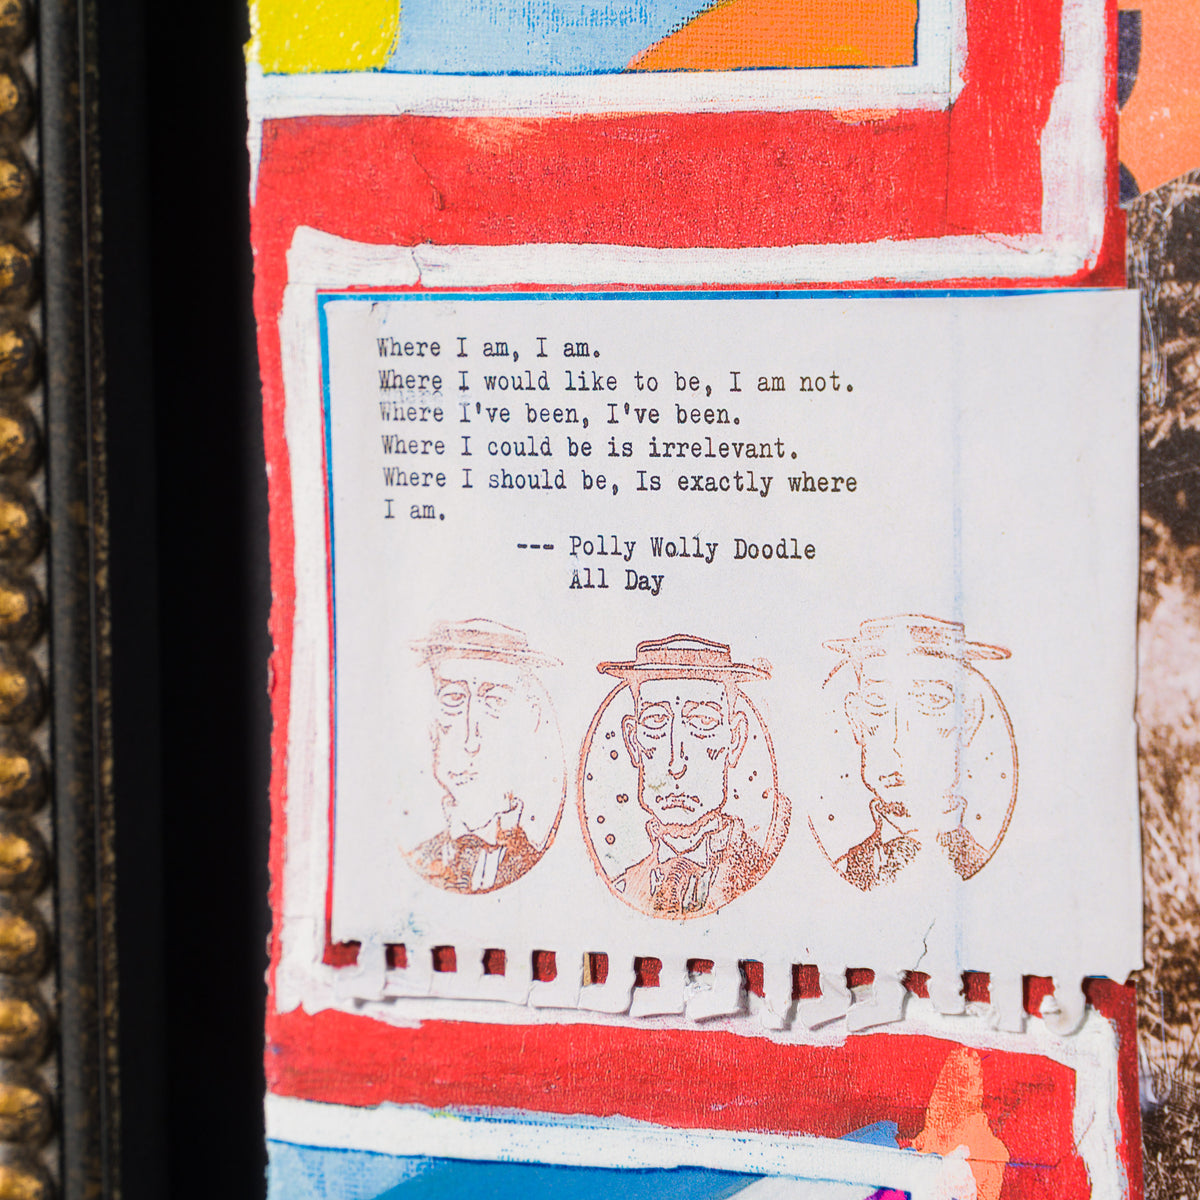 Where I am, I am.
Where I would like to be, I am not.
Where I've been, I've been.
Where I could be is irrelevant.
Where I should be, Is exactly where
I am.
--- Polly Wolly Doodle
All Day